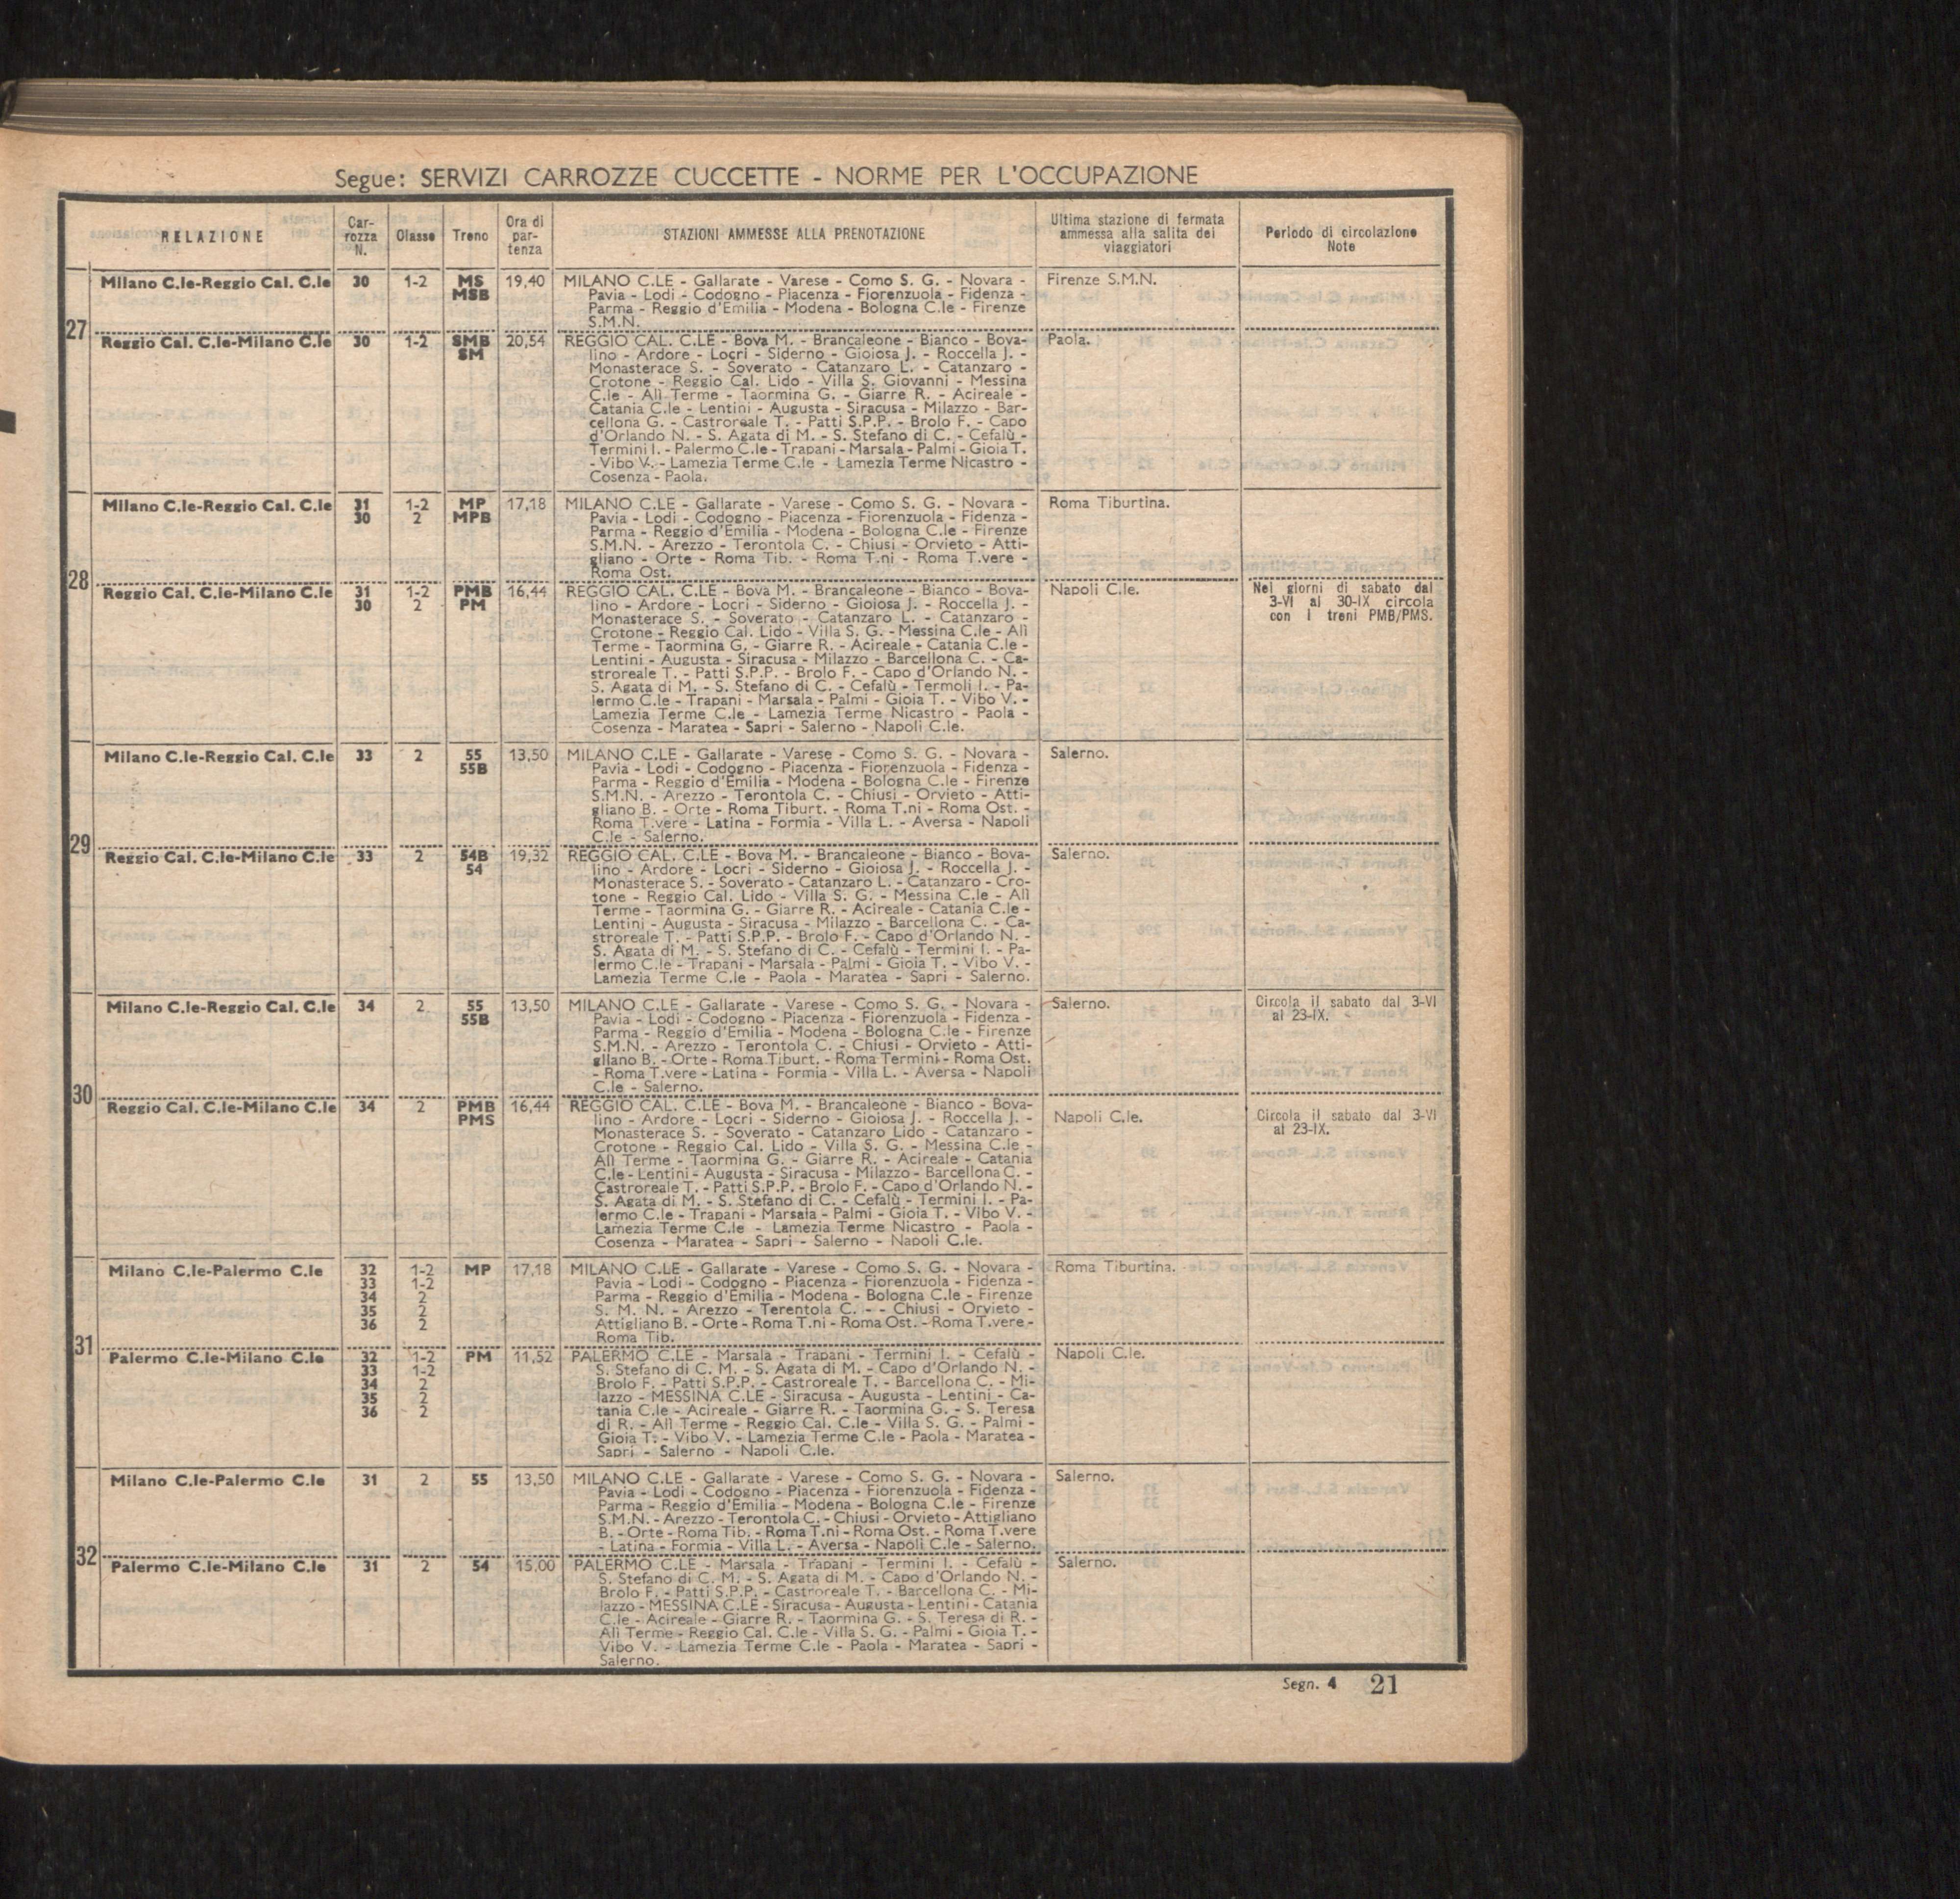 Segue: SERVIZI CARROZZE CUCCETTE - NORME PER L'OCCUPAZIONE
RELAZIONE
Car-
rozza
N.
Classe
Treno
Ora di
par-
tenza
STAZIONI AMMESSE ALLA PRENOTAZIONE
Ultima stazione di fermata
ammessa alla salita dei
viaggiatori
Periodo di circolazione
Note
27
Milano C.le-Reggio Cal. C.le 30 1-2 MS 19,40 MILANO C.LE - Gallarate - Varese - Como S. G. - Novara - Firenze S.M.N.
MSB Pavia - Lodi - Codogno - Piacenza - Fiorenzuola - Fidenza -
Parma - Reggio d'Emilia - Modena - Bologna C.le - Firenze
S.M.N.
Reggio Cal. C.le-Milano C.le 30 1-2 SMB 20,54 REGGIO CAL. C.LE - Bova M. - Brancaleone - Bianco - Bova- Paola.
SM lino - Ardore - Locri - Siderno - Gioiosa J. - Roccella J. -
Monasterace S. - Soverato - Catanzaro L. - Catanzaro -
Crotone - Reggio Cal. Lido - Villa S. Giovanni - Messina
C.le - Alì Terme - Taormina G. - Giarre R. - Acireale -
Catania C.le - Lentini - Augusta - Siracusa - Milazzo - Bar-
cellona G. - Castroreale T. - Patti S.P.P. - Brolo F. - Capo
d'Orlando N. - S. Agata di M. - S. Stefano di C. - Cefalù -
Termini I. - Palermo C.le - Trapani - Marsala - Palmi - Gioia T.
- Vibo V. - Lamezia Terme C.le - Lamezia Terme Nicastro -
Cosenza - Paola.
28
Milano C.le-Reggio Cal. C.le 31 1-2 MP 17,18 MILANO C.LE - Gallarate - Varese - Como S. G. - Novara - Roma Tiburtina.
30 2 MPB Pavia - Lodi - Codogno - Piacenza - Fiorenzuola - Fidenza -
Parma - Reggio d'Emilia - Modena - Bologna C.le - Firenze
S.M.N. - Arezzo - Terontola C. - Chiusi - Orvieto - Atti-
gliano - Orte - Roma Tib. - Roma T.ni - Roma T.vere -
Roma Ost.
Reggio Cal. C.le-Milano C.le 31 1-2 PMB 16,44 REGGIO CAL. C.LE - Bova M. - Brancaleone - Bianco - Bova- Napoli C.le. Nei giorni di sabato dal
30 2 PM lino - Ardore - Locri - Siderno - Gioiosa J. - Roccella J. - 3-VI al 30-IX circola
Monasterace S. - Soverato - Catanzaro L. - Catanzaro - con i treni PMB/PMS.
Crotone - Reggio Cal. Lido - Villa S. G. - Messina C.le - Alì
Terme - Taormina G. - Giarre R. - Acireale - Catania C.le -
Lentini - Augusta - Siracusa - Milazzo - Barcellona C. - Ca-
stroreale T. - Patti S.P.P. - Brolo F. - Capo d'Orlando N. -
S. Agata di M. - S. Stefano di C. - Cefalù - Termoli I. - Pa-
lermo C.le - Trapani - Marsala - Palmi - Gioia T. - Vibo V. -
Lamezia Terme C.le - Lamezia Terme Nicastro - Paola -
Cosenza - Maratea - Sapri - Salerno - Napoli C.le.
29
Milano C.le-Reggio Cal. C.le 33 2 55 13,50 MILANO C.LE - Gallarate - Varese - Como S. G. - Novara - Salerno.
55B Pavia - Lodi - Codogno - Piacenza - Fiorenzuola - Fidenza -
Parma - Reggio d'Emilia - Modena - Bologna C.le - Firenze
S.M.N. - Arezzo - Terontola C. - Chiusi - Orvieto - Atti-
gliano B. - Orte - Roma Tiburt. - Roma T.ni - Roma Ost. -
Roma T.vere - Latina - Formia - Villa L. - Aversa - Napoli
C.le - Salerno.
Reggio Cal. C.le-Milano C.le 33 2 54B 19,32 REGGIO CAL. C.LE - Bova M. - Brancaleone - Bianco - Bova- Salerno.
54 lino - Ardore - Locri - Siderno - Gioiosa J. - Roccella J. -
Monasterace S. - Soverato - Catanzaro L. - Catanzaro - Cro-
tone - Reggio Cal. Lido - Villa S. G. - Messina C.le - Alì
Terme - Taormina G. - Giarre R. - Acireale - Catania C.le -
Lentini - Augusta - Siracusa - Milazzo - Barcellona C. - Ca-
stroreale T. - Patti S.P.P. - Brolo F. - Capo d'Orlando N. -
S. Agata di M. - S. Stefano di C. - Cefalù - Termini I. - Pa-
lermo C.le - Trapani - Marsala - Palmi - Gioia T. - Vibo V. -
Lamezia Terme C.le - Paola - Maratea - Sapri - Salerno.
30
Milano C.le-Reggio Cal. C.le 34 2 55 13,50 MILANO C.LE - Gallarate - Varese - Como S. G. - Novara - Salerno. Circola il sabato dal 3-VI
55B Pavia - Lodi - Codogno - Piacenza - Fiorenzuola - Fidenza - al 23-IX.
Parma - Reggio d'Emilia - Modena - Bologna C.le - Firenze
S.M.N. - Arezzo - Terontola C. - Chiusi - Orvieto - Atti-
gliano B. - Orte - Roma Tiburt. - Roma Termini - Roma Ost.
- Roma T.vere - Latina - Formia - Villa L. - Aversa - Napoli
C.le - Salerno.
Reggio Cal. C.le-Milano C.le 34 2 PMB 16,44 REGGIO CAL. C.LE - Bova M. - Brancaleone - Bianco - Bova-
PMS lino - Ardore - Locri - Siderno - Gioiosa J. - Roccella J. - Napoli C.le. Circola il sabato dal 3-VI
Monasterace S. - Soverato - Catanzaro Lido - Catanzaro - al 23-IX.
Crotone - Reggio Cal. Lido - Villa S. G. - Messina C.le -
Alì Terme - Taormina G. - Giarre R. - Acireale - Catania
C.le - Lentini - Augusta - Siracusa - Milazzo - Barcellona C. -
Castroreale T. - Patti S.P.P. - Brolo F. - Capo d'Orlando N. -
S. Agata di M. - S. Stefano di C. - Cefalù - Termini I. - Pa-
lermo C.le - Trapani - Marsala - Palmi - Gioia T. - Vibo V. -
Lamezia Terme C.le - Lamezia Terme Nicastro - Paola -
Cosenza - Maratea - Sapri - Salerno - Napoli C.le.
31
Milano C.le-Palermo C.le 32 1-2 MP 17,18 MILANO C.LE - Gallarate - Varese - Como S. G. - Novara - Roma Tiburtina.
33 1-2 Pavia - Lodi - Codogno - Piacenza - Fiorenzuola - Fidenza -
34 2 Parma - Reggio d'Emilia - Modena - Bologna C.le - Firenze
35 2 S. M. N. - Arezzo - Terentola C. - - Chiusi - Orvieto -
36 2 Attigliano B. - Orte - Roma T.ni - Roma Ost. - Roma T.vere -
Roma Tib.
Palermo C.le-Milano C.le 32 1-2 PM 11,52 PALERMO C.LE - Marsala - Trapani - Termini I. - Cefalù - Napoli C.le.
33 1-2 S. Stefano di C. M. - S. Agata di M. - Capo d'Orlando N. -
34 2 Brolo F. - Patti S.P.P. - Castroreale T. - Barcellona C. - Mi-
35 2 lazzo - MESSINA C.LE - Siracusa - Augusta - Lentini - Ca-
36 2 tania C.le - Acireale - Giarre R. - Taormina G. - S. Teresa
di R. - Alì Terme - Reggio Cal. C.le - Villa S. G. - Palmi -
Gioia T. - Vibo V. - Lamezia Terme C.le - Paola - Maratea -
Sapri - Salerno - Napoli C.le.
32
Milano C.le-Palermo C.le 31 2 55 13,50 MILANO C.LE - Gallarate - Varese - Como S. G. - Novara - Salerno.
Pavia - Lodi - Codogno - Piacenza - Fiorenzuola - Fidenza -
Parma - Reggio d'Emilia - Modena - Bologna C.le - Firenze
S.M.N. - Arezzo - Terontola C. - Chiusi - Orvieto - Attigliano
B. - Orte - Roma Tib. - Roma T.ni - Roma Ost. - Roma T.vere
- Latina - Formia - Villa L. - Aversa - Napoli C.le - Salerno.
Palermo C.le-Milano C.le 31 2 54 15,00 PALERMO C.LE - Marsala - Trapani - Termini I. - Cefalù - Salerno.
S. Stefano di C. M. - S. Agata di M. - Capo d'Orlando N. -
Brolo F. - Patti S.P.P. - Castroreale T. - Barcellona C. - Mi-
lazzo - MESSINA C.LE - Siracusa - Augusta - Lentini - Catania
C.le - Acireale - Giarre R. - Taormina G. - S. Teresa di R. -
Alì Terme - Reggio Cal. C.le - Villa S. G. - Palmi - Gioia T. -
Vibo V. - Lamezia Terme C.le - Paola - Maratea - Sapri -
Salerno.
Segn. 4 21